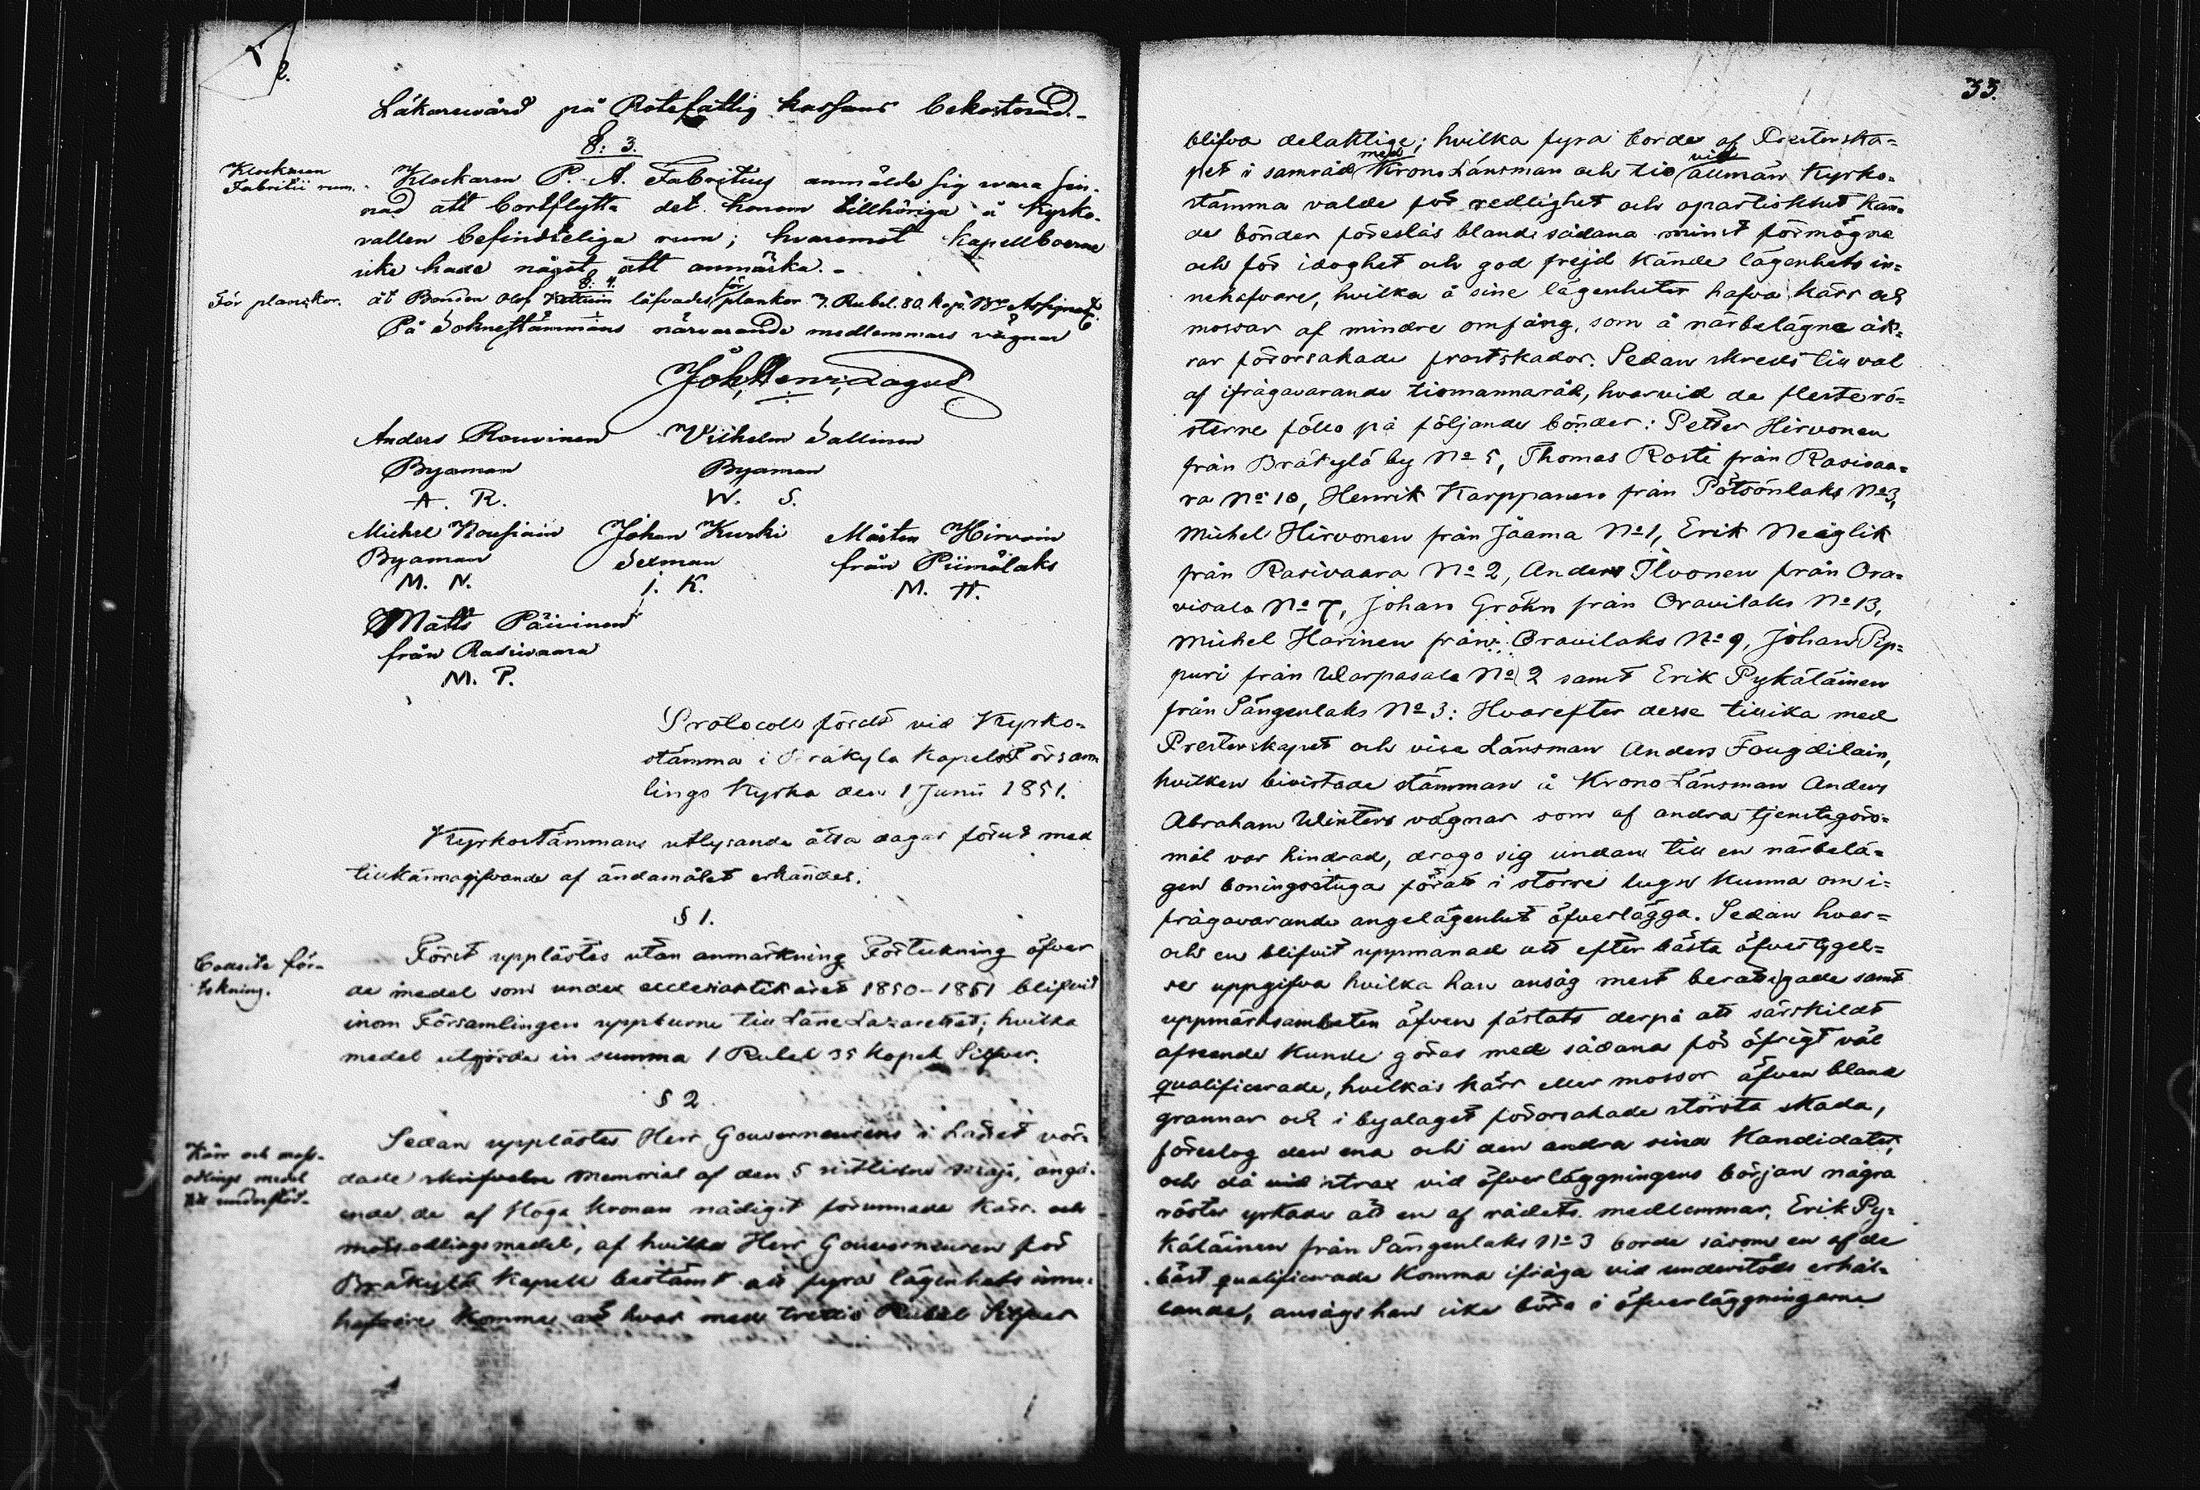 2.
Läkarevård på Rotefattig kassans bekostnad.
§: 3.
Klockaren
Fabritii rum.
Klockaren P. A. Fabritius anmälde sig wara sin-
nad att bortflytta det honom tillhöriga å Kyrko-
vallen befindteliga rum; hvaremot Kapellboerne
icke hade något att anmärka.
§: 4.
För planckor.
åt Bonden Olof läfvades för plankor 7. Rubel. 80. Kop. Bco Assignat.
På Soknestämmans närvarande medlemmars vägnar
Joh. Henr. Lagus
Anders Rouvinen Vilhelm Sallinen
Byaman Byaman
A. R. W. S.
Michel Nousiain Johan Kurki Mårten Hirvoin
Byaman Sexman från Piimälaks
M. N. J. K. M. H.
Matts Päivinen
från Rasivaara
M. P.
Protocoll fördt vid Kyrko-
stämma i Bräkylä Kapellförsam
lings Kyrka den 1 Junii 1851.
Kyrkostämmans utlysande åtta dagar förut med
tillkännagifvande af ändamålet erkändes.
§ 1.
för-
tekning.
Först upplästes utan anmärkning Förtekning öfver
de medel som under ecclesiastik året 1850–1851 blifvit
inom Församlingen uppburne till Läne Lazarettet; hvilka
medel utgjorde in summa 1 Rubel 35 Kopek Silfver.
§ 2
Kärr och moss-
odlings medel
till understöd.
Sedan upplästes Herr Gouverneurens i Länet vör-
dade skrifvelse Memorial af den 5 sistlidne Maji, angå-
ende de af Höga Kronan nådigst förunnade Kärr- och
mossodlingsmedel, af hvilka Herr Gouverneuren för
Bräkylä Kapell bestämt att fyra lägenhets inne-
hafvare komma att hvar med trettio Rubel Silfver
33.
blifva delaktige; hvilka fyra borde af Presterska-
pet i samråd med Krono Länsman och tio vid allmän Kyrko-
stämma valde för redlighet och opartiskhet kän-
de bönder föreslås bland sådana minst förmögne
och för idoghet och god frejd kände lägenhets in-
nehafvare, hvilka å sine lägenheter hafva kärr och
mossar af mindre omfång, som å närbelägne åk-
rar förorsakade frostskador. Sedan skreds till val
af ifrågavarande tiomannaråd, hvarvid de flesta rö-
sterne föllo på följande bönder: Petter Hirvonen
från Bräkylä by No 5, Thomas Roste från Rasivaa-
ra No 10, Henrik Karppanen från Potsönlaks No 3,
Michel Hirvonen från Jaama No 1, Erik Neiglik
från Rasivaara No 2, Anders Ilvonen från Ora-
visalo No 7, Johan Gröhn från Oravilaks No 13,
Michel Harinen från Oravilaks No 9, Johan Pip-
puri från Warpasalo No 2 samt Erik Pykäläinen
från Sängenlaks No 3: Hvarefter desse tillika med
Presterskapet och vice Länsman Anders Fougdilain,
hvilken bivistade stämman å Krono Länsman Anders
Abraham Winters vägnar som af andra tjenstegöro-
mål var hindrad, drogo sig undan till en närbelä-
gen boningsstuga föratt i större lugn kunna om i-
frågavarande angelägenhet öfverlägga. Sedan hvar-
och en blifvit uppmanad att efter bästa öfvertygel-
se uppgifva hvilka han ansåg mest berättigade samt
uppmärksamheten äfven fästats derpå att särskildt
afseende kunde göras med sådana för öfrigt väl
qualificerade, hvilkas kärr eller mossor äfven bland
grannar och i byalaget förorsakade största skada,
föreslog den ena och den andra sina Kandidater,
och då vid strax vid öfverläggningens början några
röster yrkade att en af rådets medlemmar, Erik Py-
käläinen från Sängenlaks No 3 borde såsom en af de
bäst qualificerade komma ifråga vid understöds erhål-
lande, ansågs han icke böra i öfverläggningarne